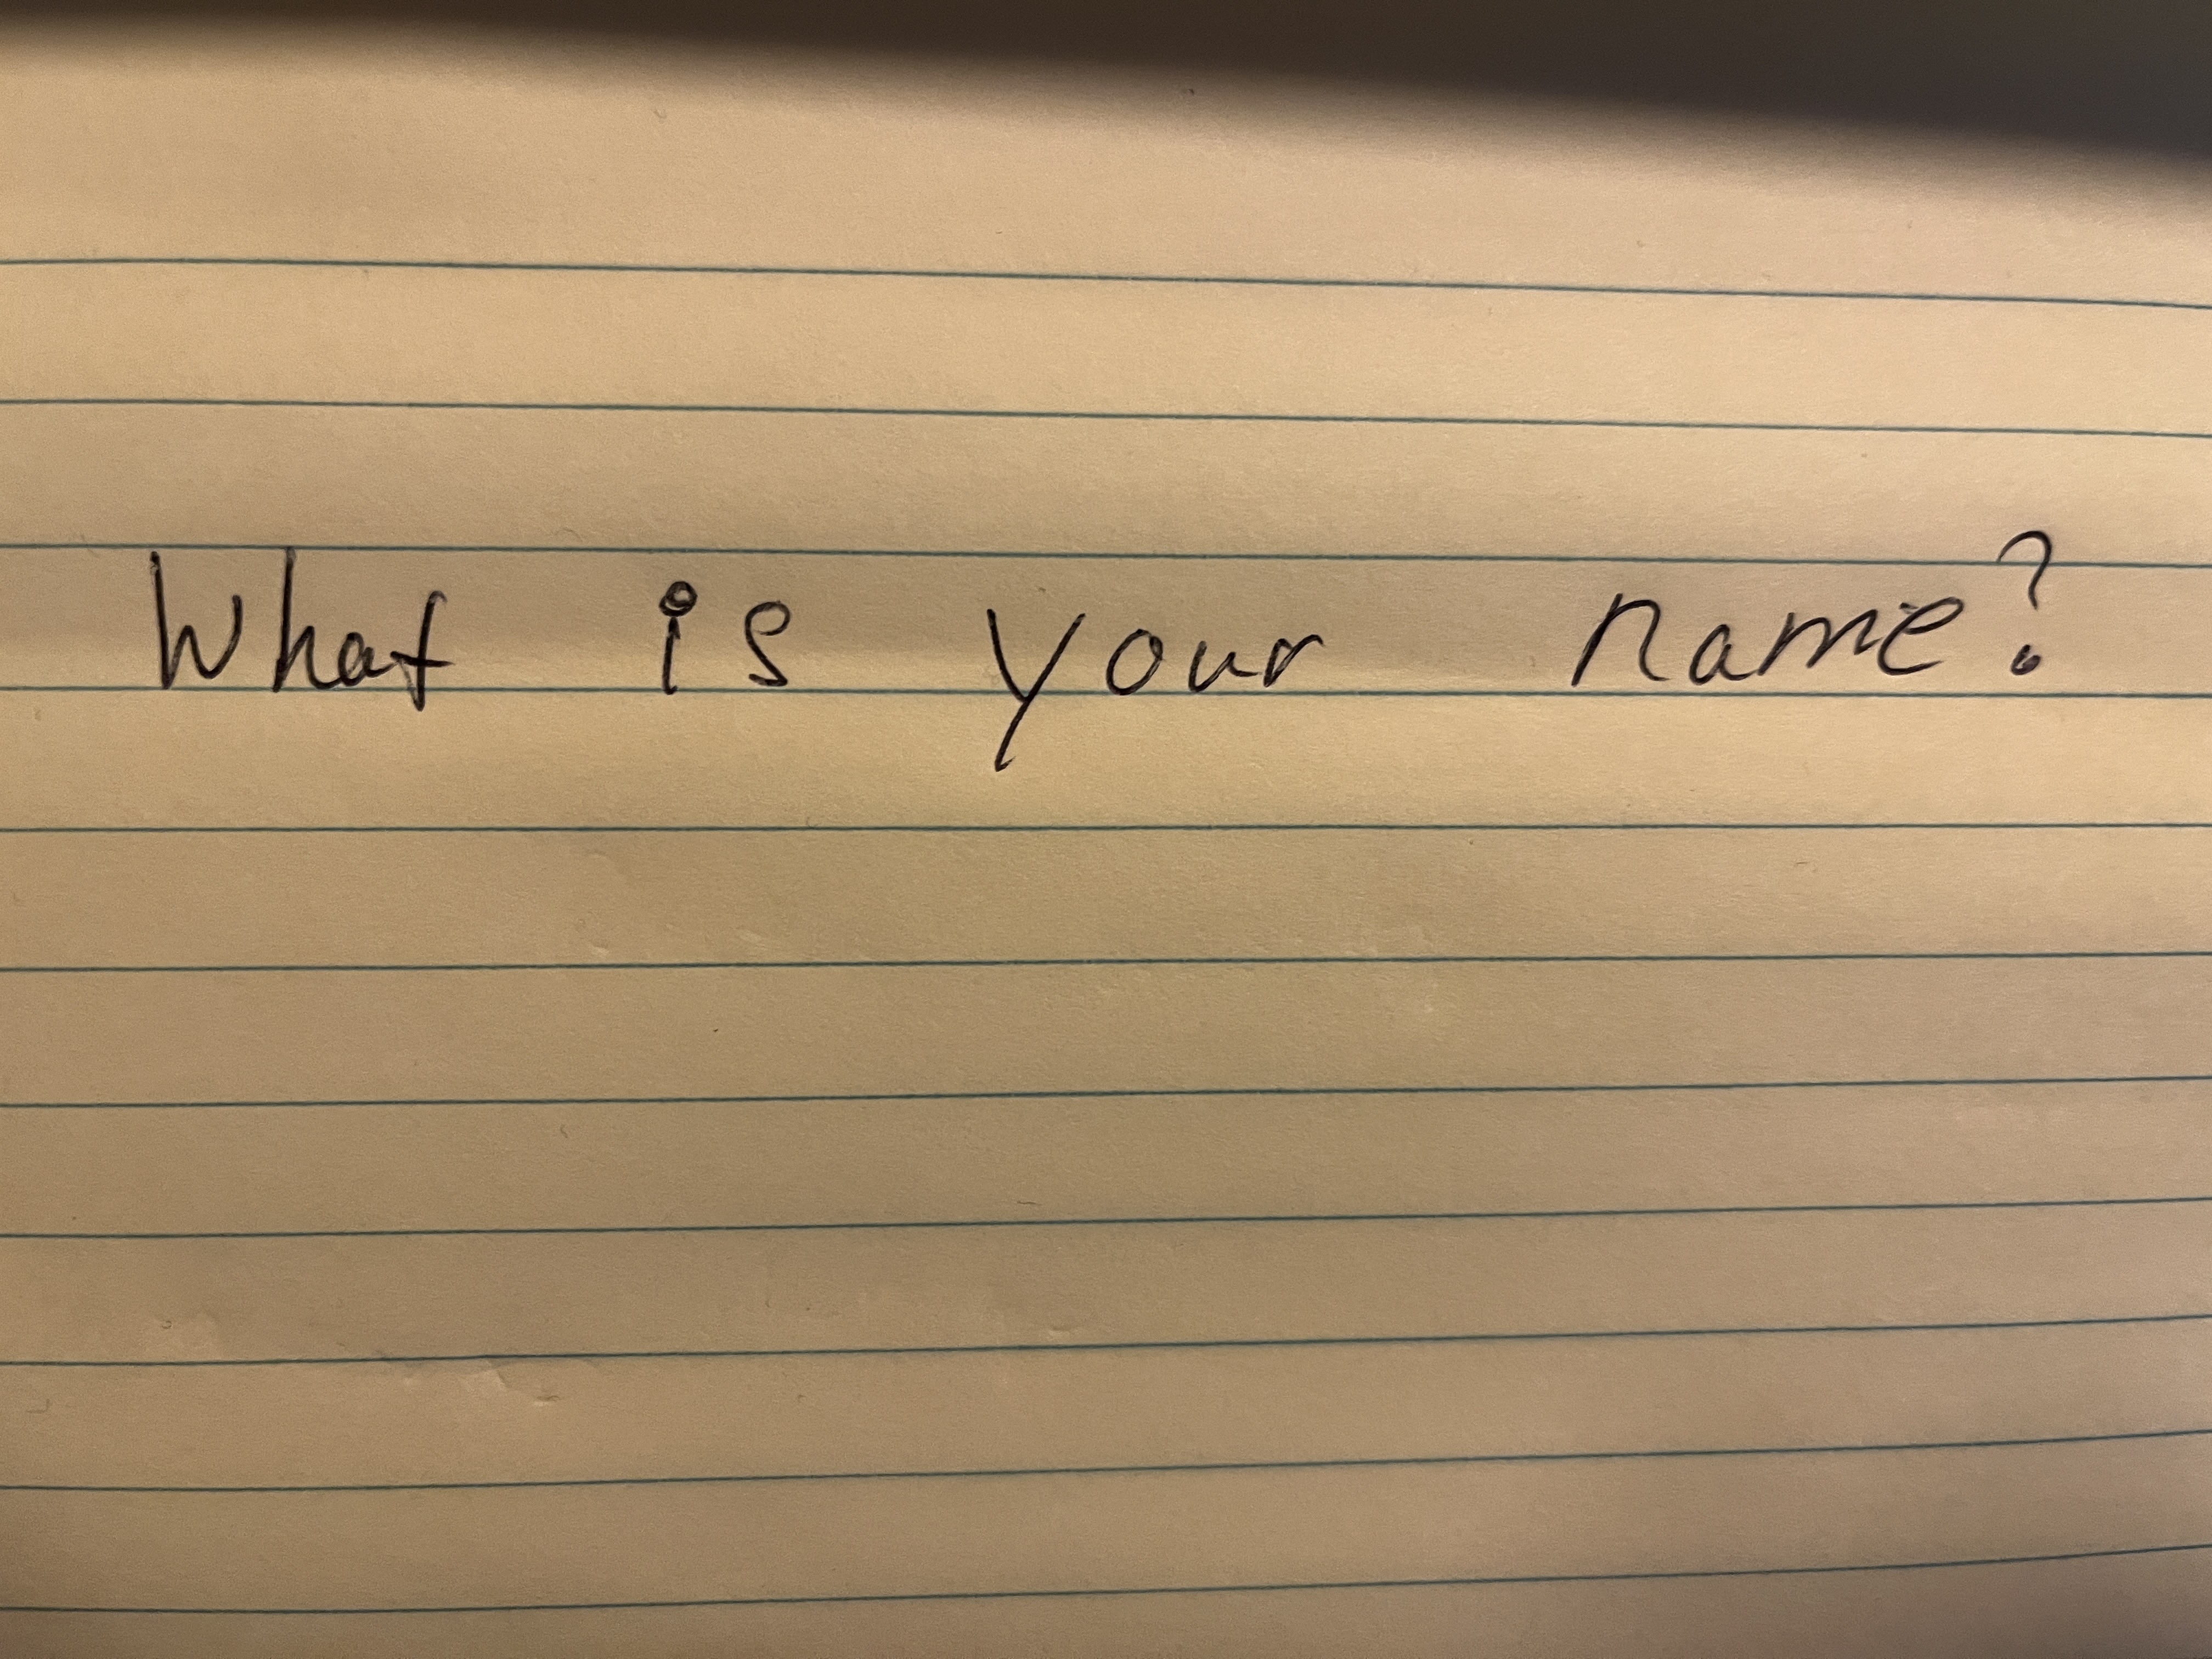 What is your name?